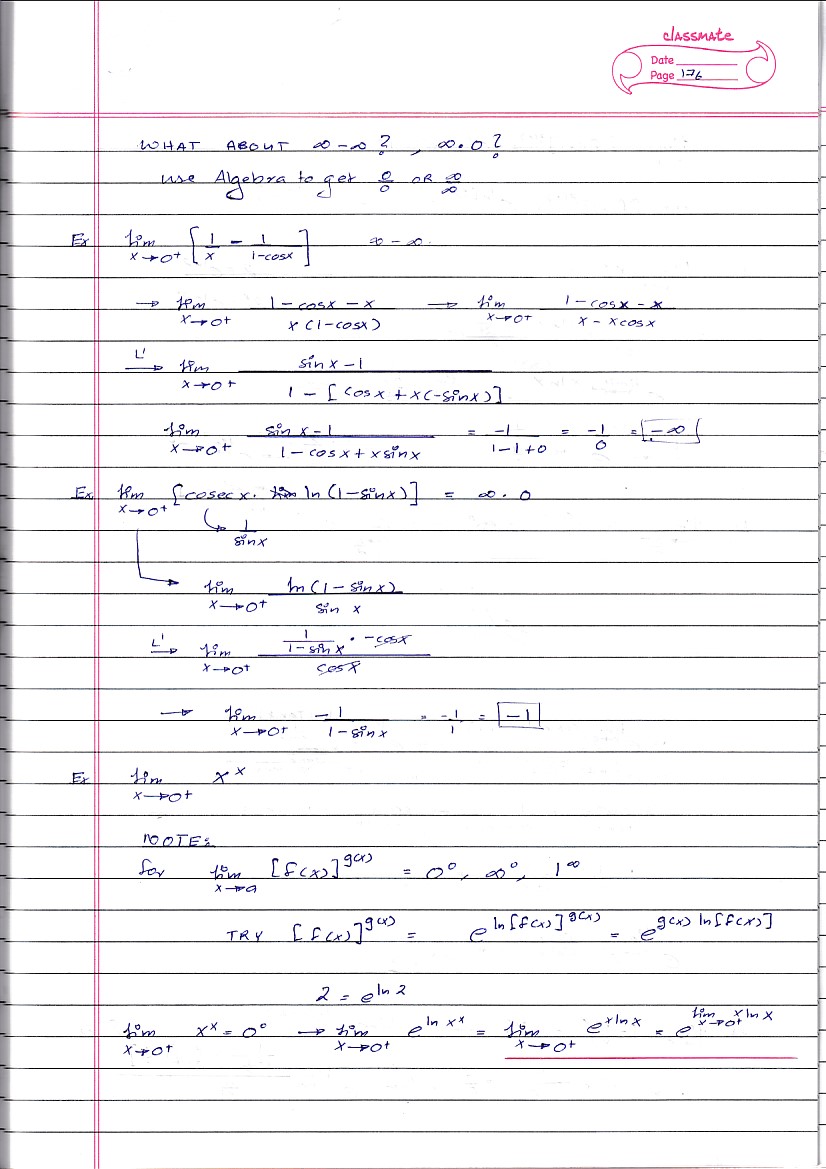 classmate
Date
Page 176
WHAT ABOUT ∞ - ∞ ? , ∞ · 0 ?
use Algebra to get 0/0 OR ∞/∞
Ex lim x→0⁺ [1/x - 1/(1-cosx)] ∞ - ∞.
→ lim x→0⁺ (1-cosx-x)/(x(1-cosx)) → lim x→0⁺ (1-cosx-x)/(x-xcosx)
L' → lim x→0⁺ (sinx-1)/(1-[cosx+x(-sinx)])
lim x→0⁺ (sinx-1)/(1-cosx+xsinx) = -1/(1-1+0) = -1/0 = -∞
Ex lim x→0⁺ [cosec x. ln(1-sinx)] = ∞ · 0
1/sinx
lim x→0⁺ ln(1-sinx)/sin x
L' → lim x→0⁺ (1/(1-sinx) · -cosx)/cosx
→ lim x→0⁺ -1/(1-sinx) = -1/1 = -1
Ex lim x→0⁺ xˣ
NOTE:
for lim x→a [f(x)]^g(x) = 0⁰, ∞⁰, 1^∞
TRY [f(x)]^g(x) = e^(ln[f(x)]^g(x)) = e^(g(x) ln[f(x)])
2 = e^(ln 2)
lim x→0⁺ xˣ = 0⁰ → lim x→0⁺ e^(ln xˣ) = lim x→0⁺ e^(xlnx) = e^(lim x→0⁺ xlnx)